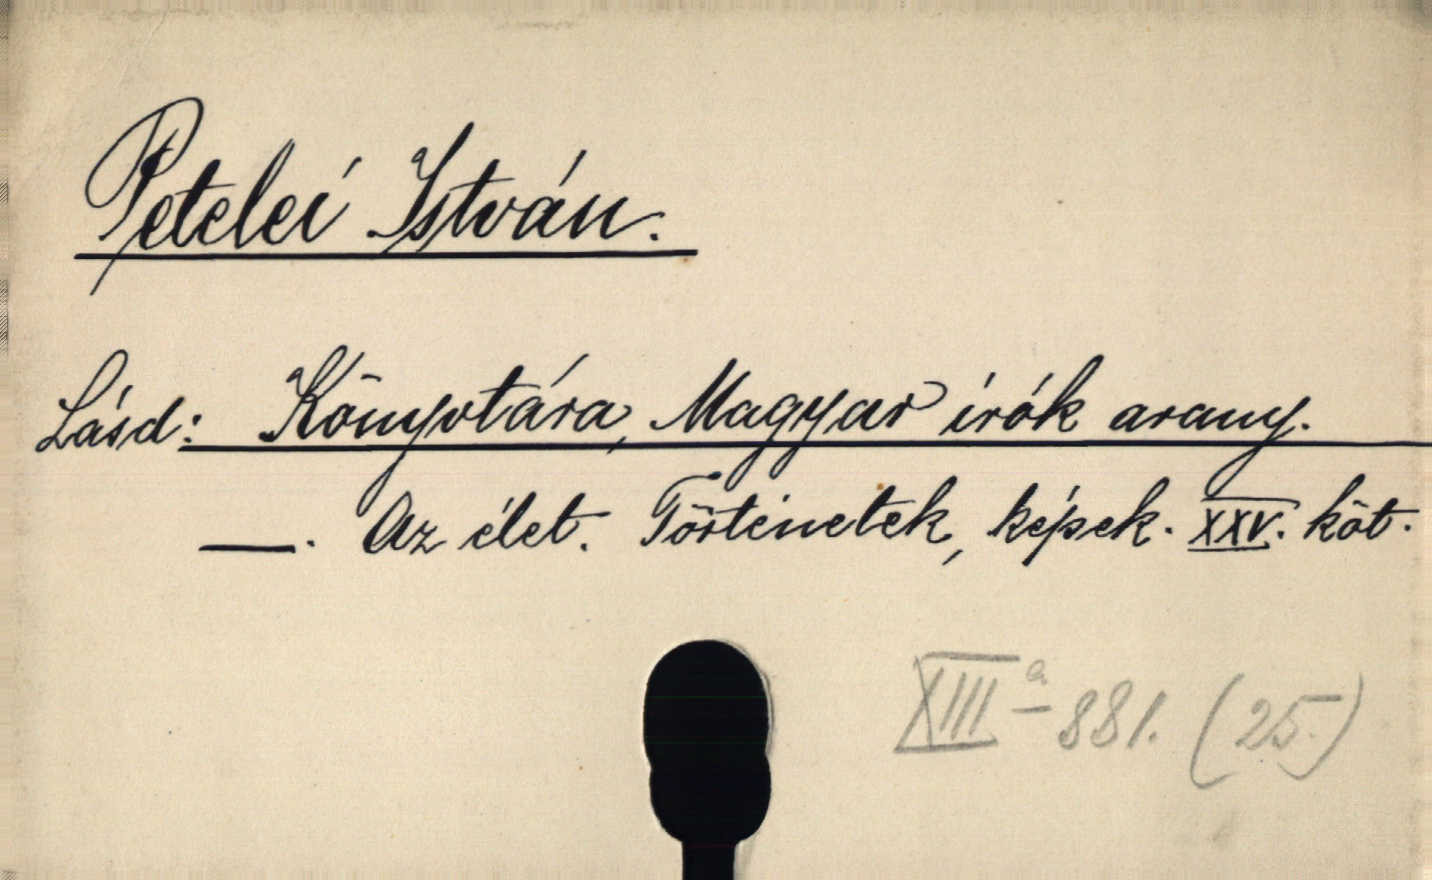 Petelei István.
Lásd: Könyvtára, Magyar irók arany.
—. Az élet. Történetek, képek. XXV. köt.
XIII a - 881. (25.)